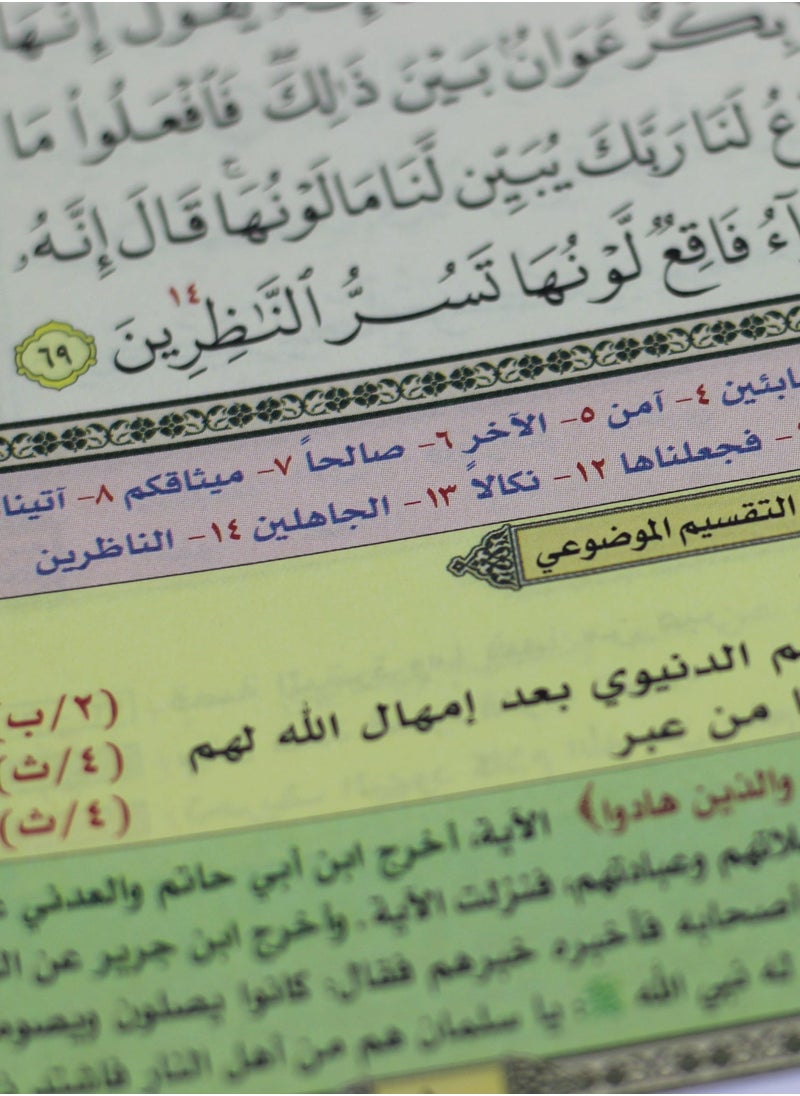 يقول إنها
بِكْرٌ عَوَانٌ بَيْنَ ذَٰلِكَ فَٱفْعَلُوا۟ مَا
لَنَا رَبَّكَ يُبَيِّن لَّنَا مَا لَوْنُهَا ۚ قَالَ إِنَّهُۥ
فَاقِعٌ لَّوْنُهَا تَسُرُّ ٱلنَّٰظِرِينَ ١٤ ٦٩
٤- آمن ٥- الآخر ٦- صالحاً ٧- ميثاقكم ٨- آتينا
فجعلناها ١٢- نكالاً ١٣- الجاهلين ١٤- الناظرين
التقسيم الموضوعي
الدنيوي بعد إمهال الله لهم (٢/ب)
من عبر (٤/ث)
(٤/ث)
والذين هادوا﴾ الآية، أخرج ابن أبي حاتم والعدني
وعبادتهم، فنزلت الآية. وأخرج ابن جرير عن
أصحابه فأخبره خبرهم فقال: كانوا يصلون
له نبي الله ﷺ: يا سلمان هم من أهل النار فاشتد